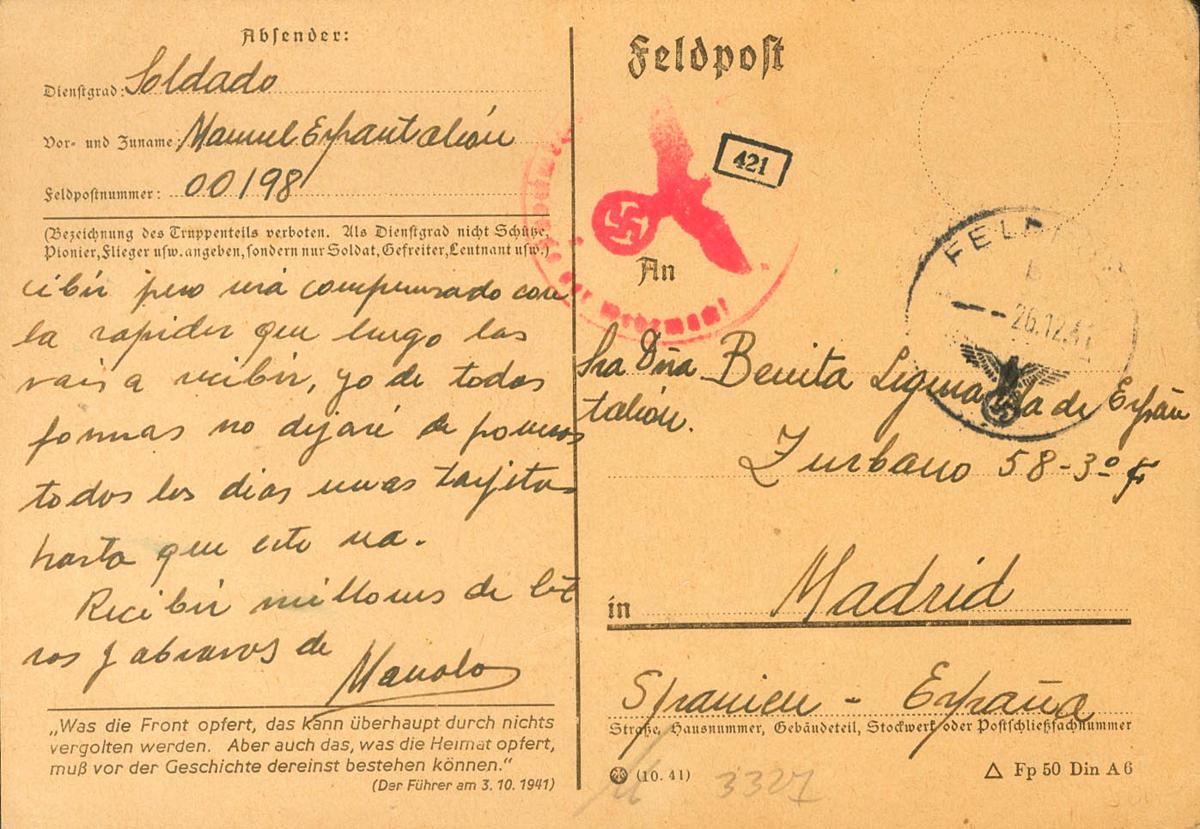 Absender:
Dienstgrad: Soldado
Vor- und Zuname: Manuel Espantaleón
Feldpostnummer: 00198
(Bezeichnung des Truppenteils verboten. Als Dienstgrad nicht Schütze,
Pionier, Flieger usw. angeben, sondern nur Soldat, Gefreiter, Leutnant usw.)
cibir pero será compensado con
la rapidez que luego las
vais a recibir, yo de todas
formas no dejaré de poneros
todos los dias unas tarjetas
hasta que este
Recibir millones de be
sos y abrazos de
Manolo
„Was die Front opfert, das kann überhaupt durch nichts
vergolten werden. Aber auch das, was die Heimat opfert,
muß vor der Geschichte dereinst bestehen können.“
(Der Führer am 3. 10. 1941)
Feldpost
421
der Wehrmacht
An
FELDP
b
26.12.41
Sra Dña Benita de Espan
taleón.
Zurbano 58-3º
in Madrid
Spanien - España
Straße, Hausnummer, Gebäudeteil, Stockwerk oder Postschließfachnummer
(10. 41)
3327
△ Fp 50 Din A 6